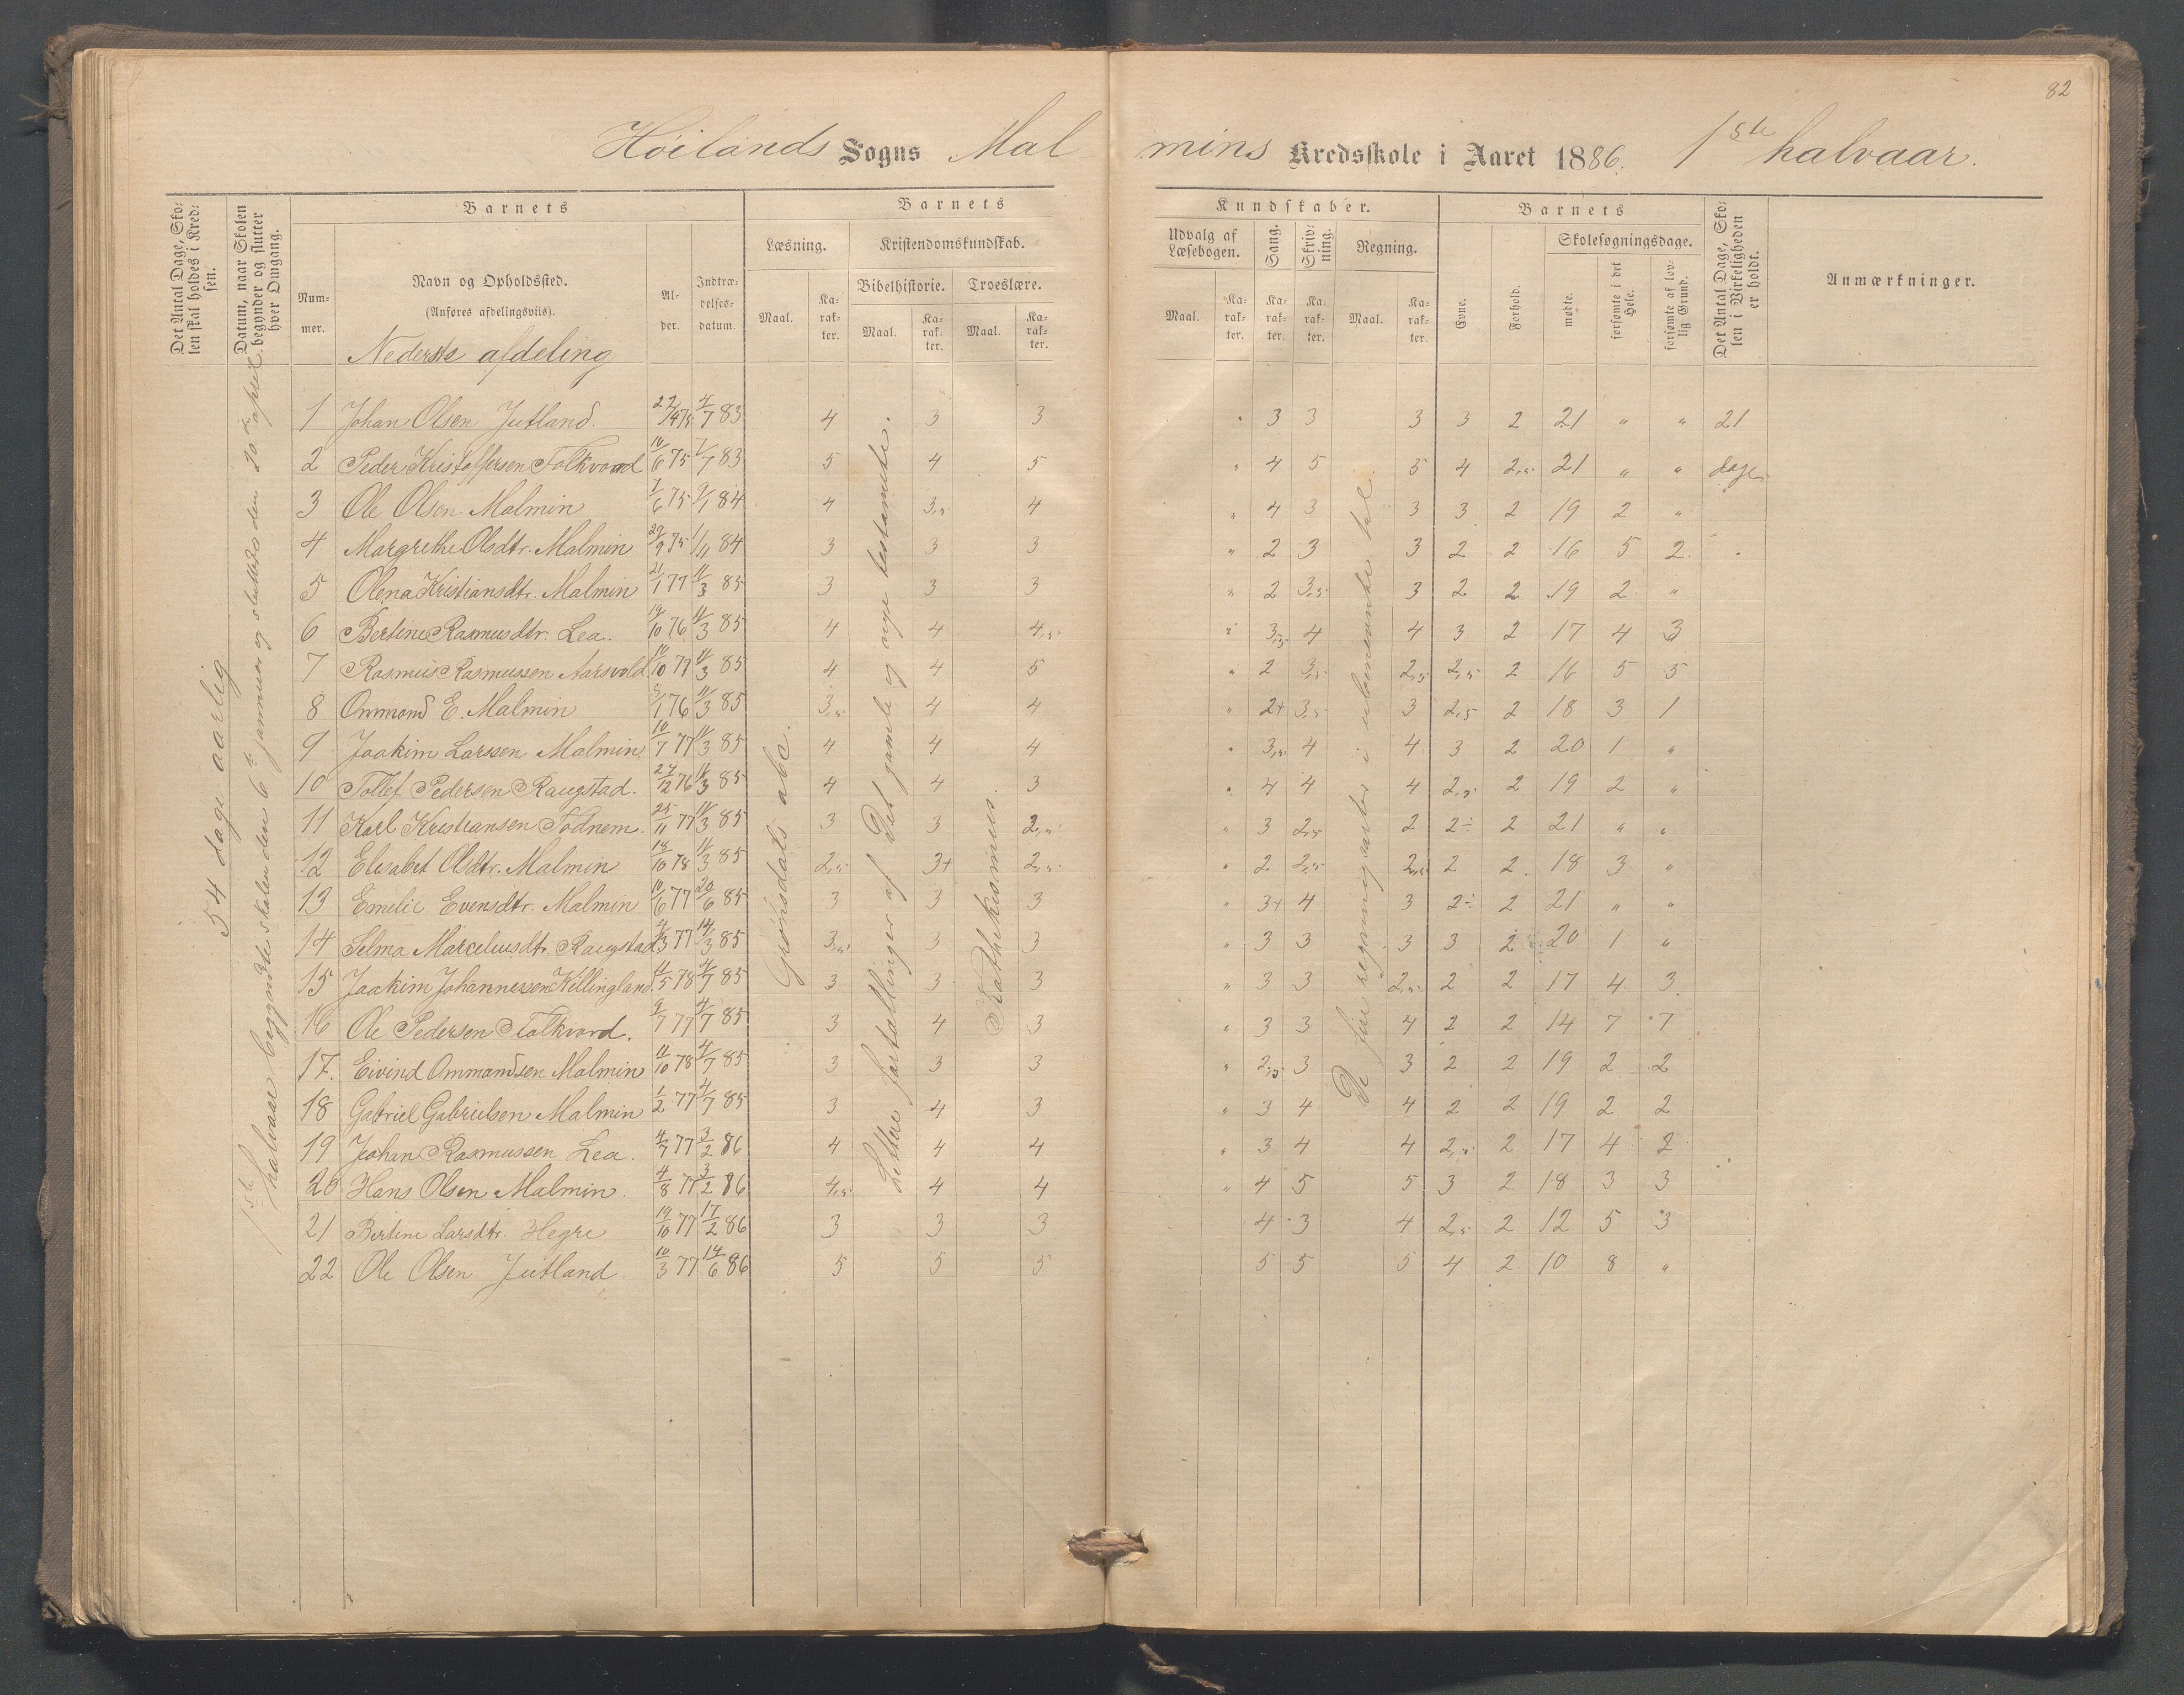 82
Höilands Sogns Malmins Kredsskole i Aaret 1886. 1ste halvaar.
Det Antal Dage, Skolen skal holdes i Kredsen.
Datum, naar Skolen begynder og slutter hver Omgang.
Barnets
Nummer.
Navn og Opholdssted.
(Anføres afdelingsviis).
Nederste afdeling
Alder.
Indtrædelsesdatum.
Barnets Kundskaber.
Læsning.
Maal.
Karakter.
Kristendomskundskab.
Bibelhistorie.
Maal.
Karakter.
Troeslære.
Maal.
Karakter.
Udvalg af Læsebogen.
Maal.
Karakter.
Sang.
Karakter.
Skrivning.
Karakter.
Regning.
Maal.
Karakter.
Barnets
Evne.
Forhold.
Skolesøgningsdage.
mødte.
forsømte i det Hele.
forsømte af lovlig Grund.
Det Antal Dage, Skolen i Virkeligheden er holdt.
Anmærkninger.
54 dage aarlig
1ste halvaar begyndte skolen den 6te januuar og sluttedes den 20de april.
Grönsdals abc.
Lettere fortællinger af det gamle og nye testamente.
Kathekismus.
De fire regningsarter i ubenevnte tal.
1 Johan Olsen Jutland. 22/4 75 4/7 83 4 3 3 " 3 3 3 3 2 21 " " 21
2 Peder Kristoffersen Folkvord 10/6 75 7/7 83 5 4 5 " 4 5 5 4 2,5 21 " " dage.
3 Ole Olsen Malmin 7/6 75 9/1 84 4 3,5 4 " 4 3 3 3 2 19 2 "
4 Margrethe Olsdtr. Malmin 29/9 75 1/11 84 3 3 3 " 2 3 3 2 2 16 5 2
5 Olena Kristiansdtr. Malmin 21/1 77 11/3 85 3 3 3 " 2 3,5 3 2 2 19 2 "
6 Bertine Rasmusdtr. Lea. 19/10 76 11/3 85 4 4 4,5 " 3,5 4 4 3 2 17 4 3
7 Rasmus Rasmussen Aarsvold 10/10 77 11/3 85 4 4 5 " 2 3,5 2,5 2,5 2 16 5 5
8 Ommond E. Malmin 5/1 76 11/3 85 3,5 4 4 " 2+ 3,5 3 2,5 2 18 3 1
9 Joakim Larssen Malmin 10/7 77 11/3 85 4 4 4 " 3,5 4 4 3 2 20 1 "
10 Tollef Pedersen Raugstad. 24/12 76 11/3 85 4 4 3 " 4 4 4 2,5 2 19 2 "
11 Karl Kristiansen Fodnem. 25/11 77 11/3 85 3 3 2,5 " 3 2,5 2 2÷ 2 21 " "
12 Elisabet Olsdtr. Malmin 18/10 78 11/3 85 2,5 3+ 2,5 " 2 2,5 2,5 2 2 18 3 "
13 Emelie Evensdtr. Malmin 10/6 77 20/6 85 3 3 3 " 3+ 4 3 2÷ 2 21 " "
14 Selma Marceliusdtr. Raugstad 4/3 77 14/3 85 3,5 3 3 " 3 3 3 3 2 20 1 "
15 Joakim Johannessen Killingland 11/5 78 4/7 85 3 3 3 " 3 3 2,5 2 2 17 4 3
16 Ole Pedersen Folkvord. 9/7 77 4/7 85 3 4 3 " 3 3 4 2 2 14 7 7
17. Eivind Ommandsen Malmin 11/10 78 4/7 85 3 3 3 " 2,5 3 3 2 2 19 2 2
18 Gabriel Gabrielsen Malmin 1/2 77 4/7 85 3 4 3 " 3 4 4 2 2 19 2 2
19 Johan Rasmussen Lea. 4/7 77 3/2 86 4 4 4 " 3 4 4 2,5 2 17 4 2
20 Hans Olsen Malmin. 4/8 77 3/2 86 4,5 4 4 " 4 5 5 3 2 18 3 3
21 Bertine Larsdtr. Hegre 19/10 77 17/2 86 3 3 3 4 3 4 2,5 2 12 5 3
22 Ole Olsen Jutland. 10/3 77 14/6 86 5 5 5 5 5 5 4 2 10 8 "